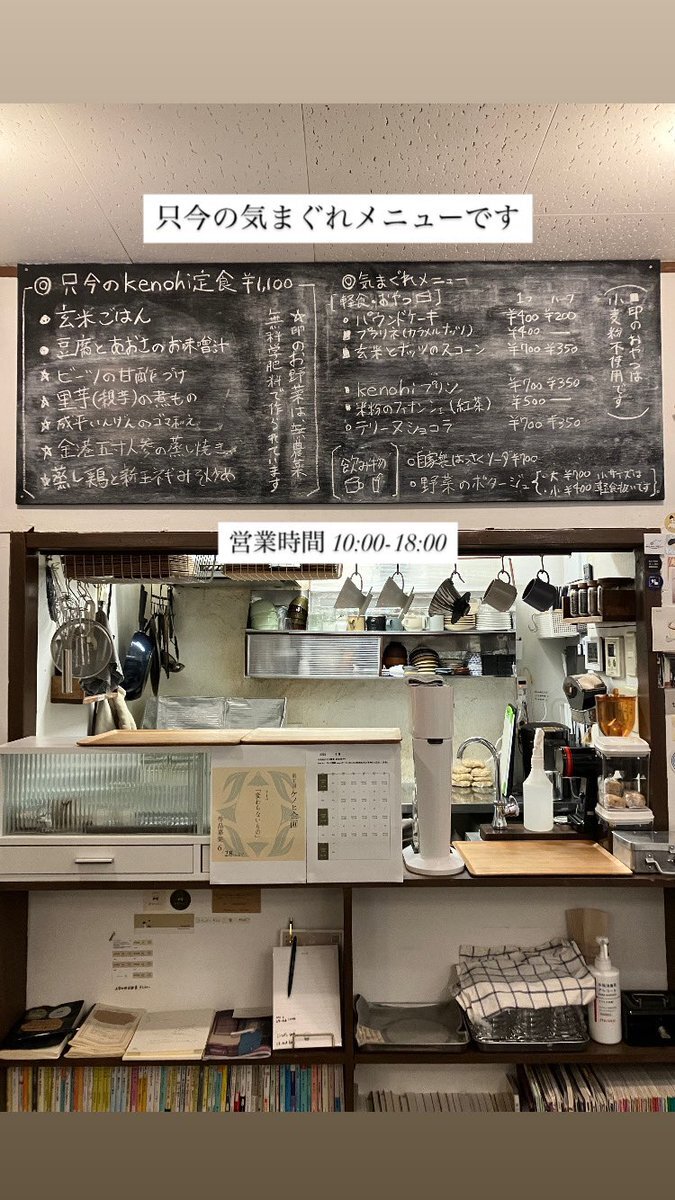 只今の気まぐれメニューです
◎只今のkenohi定食 ¥1,100
• 玄米ごはん
• 豆腐とあおさのお味噌汁
☆ ビーツの甘酢づけ
☆ 里芋(親芋)の煮もの
☆ 成平いんげんのゴマ和え
☆ 金港五寸人参の蒸し焼き
☆ 蒸し鶏と新玉ねぎみそ
☆印のお野菜は無農薬
無科学肥料で作られています
◎気まぐれメニュー
[軽食・おやつ] 1つ ハーフ
パウンドケーキ ¥400 ¥200
プラリネ(カラメルナッツ) ¥400 —
■ 玄米とナッツのスコーン ¥700 ¥350
kenohiプリン ¥700 ¥350
米粉のフィナンシェ(紅茶) ¥500 —
テリーヌショコラ ¥700 ¥350
(■印のおやつは
小麦粉不使用です)
[飲み物]
○自家製はっさくソーダ ¥700
○野菜のポタージュ
・大 ¥700 小サイズは
・小 ¥400 軽食扱いです
営業時間 10:00-18:00
「変わらないもの」
作品募集
6
28